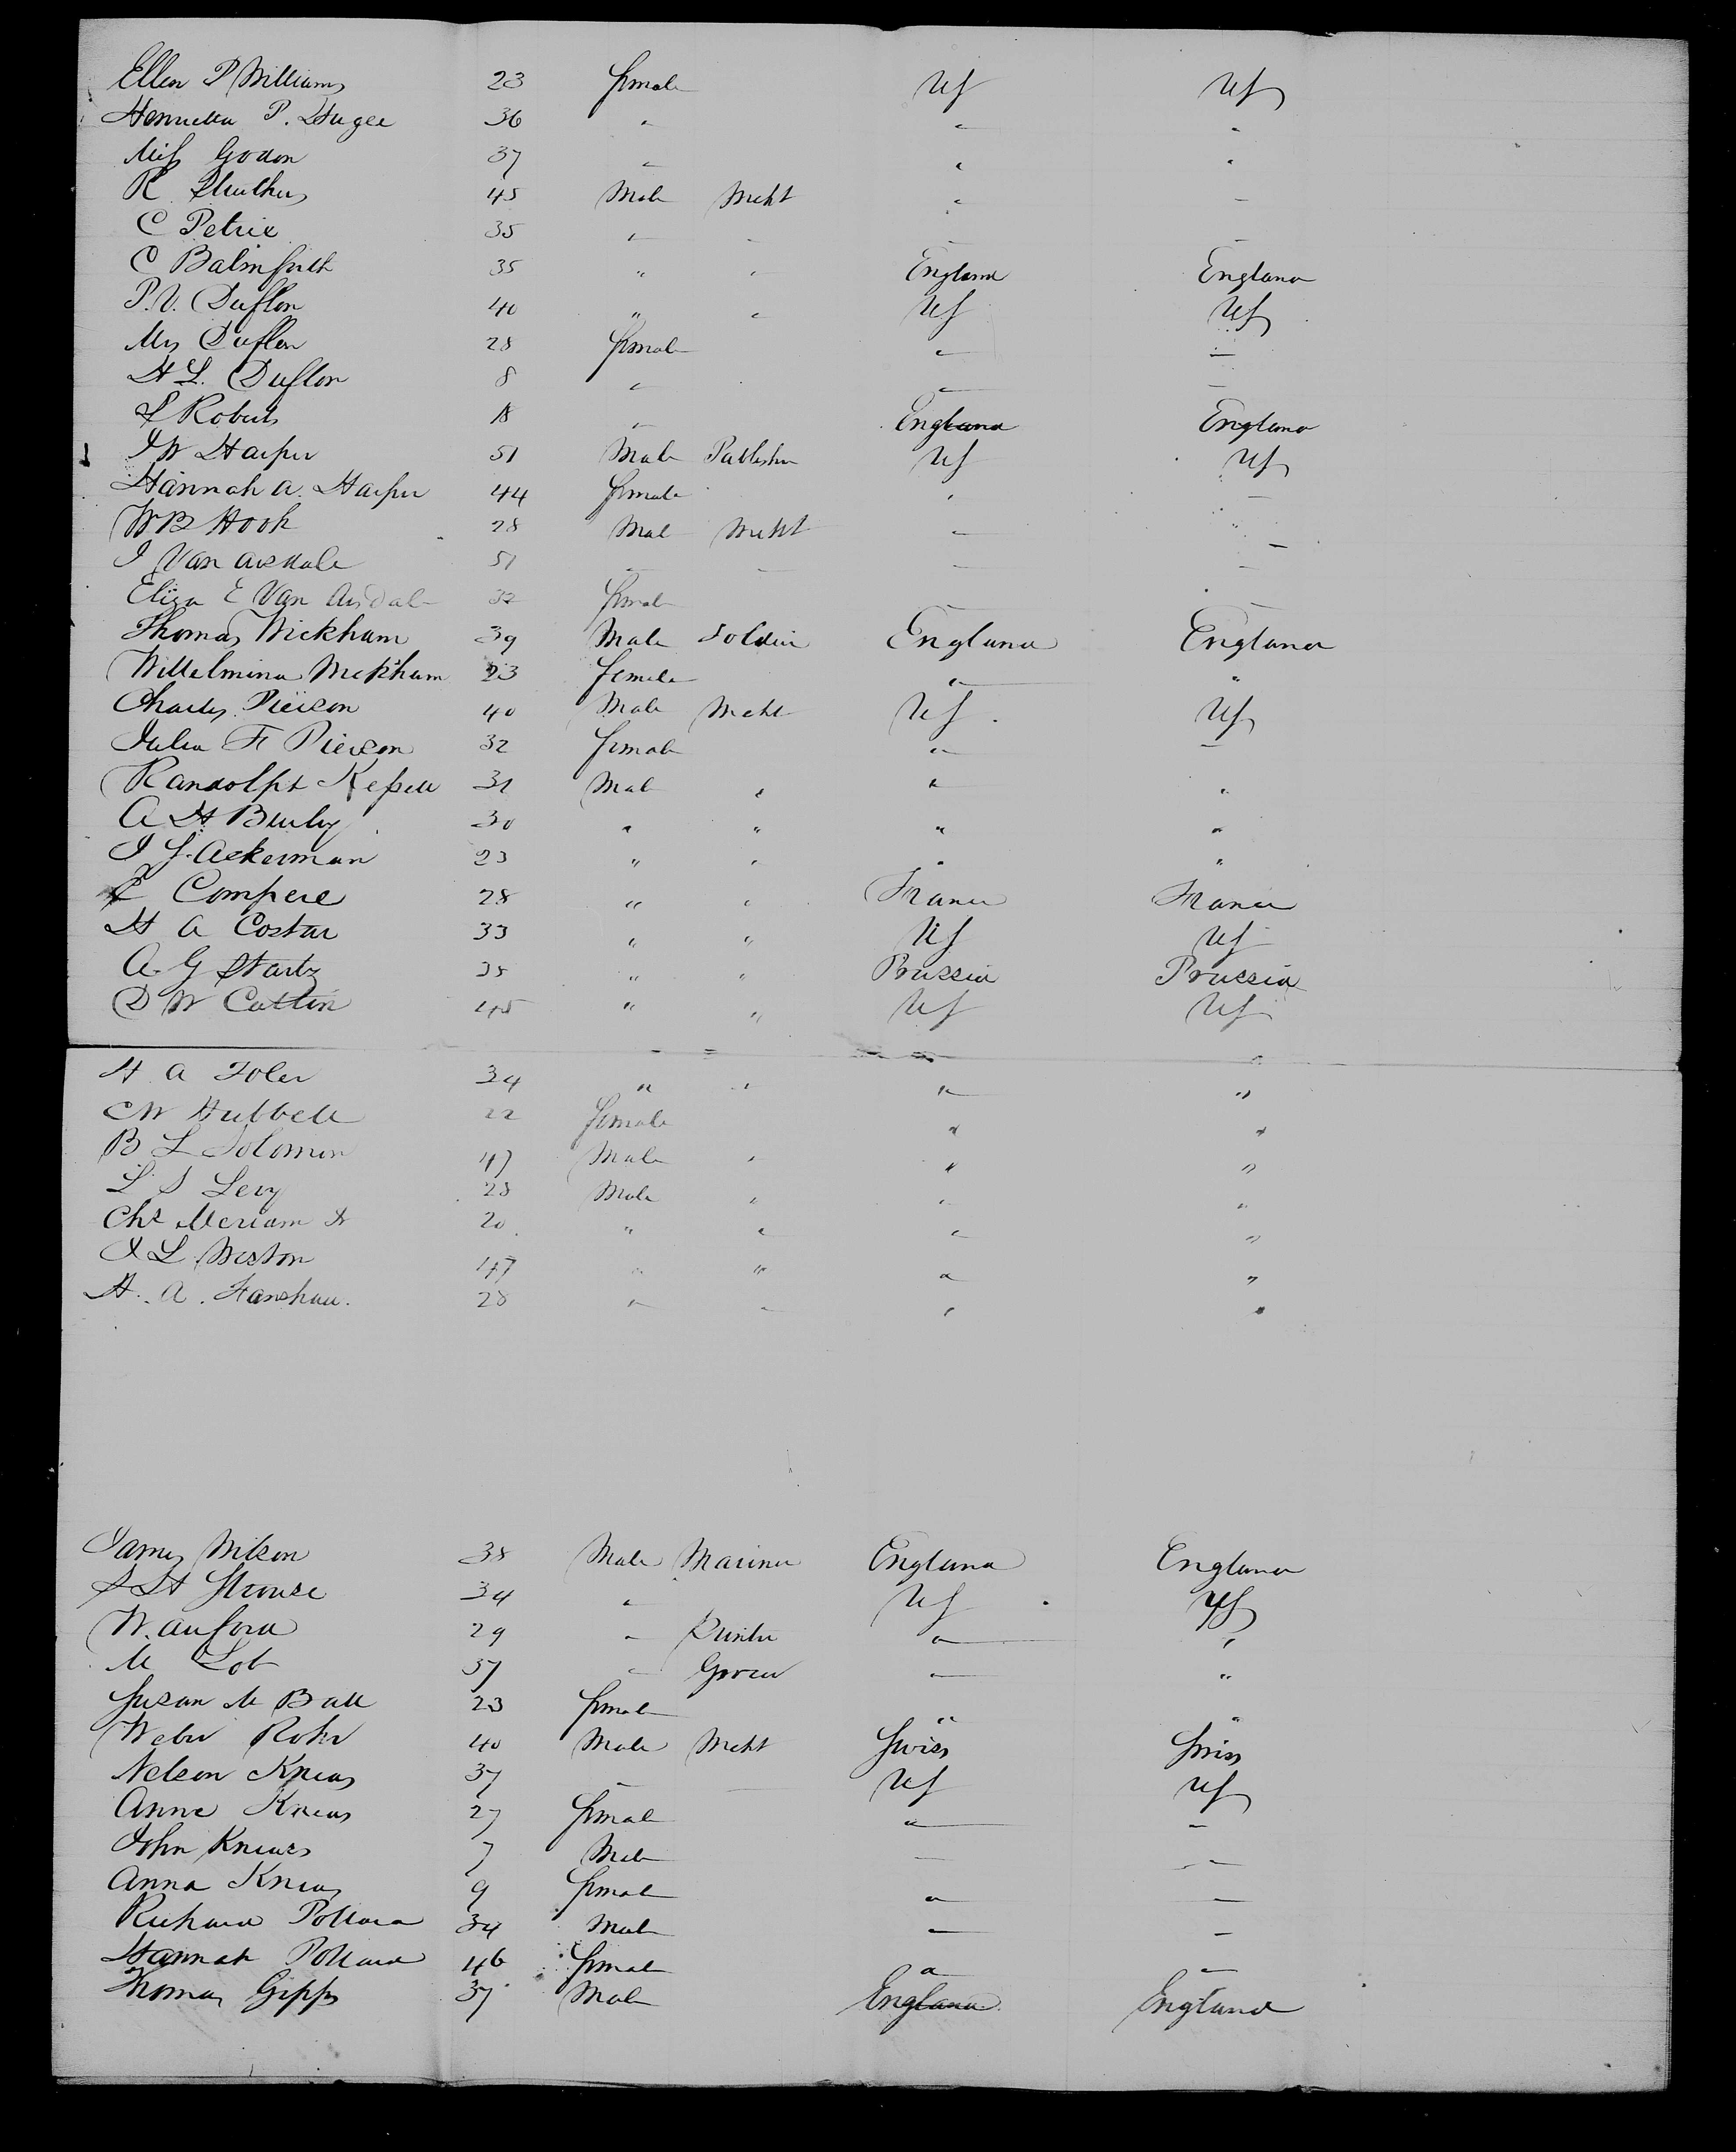 Ellen P Williams 23 female US US
Henrietta P. Hugee 36 " " "
Miss Godon 37 " " "
R 45 Male Mcht " "
C Petrie 35 " " " "
C Balmforth 35 " " England England
P.V. Duflon 40 " " US US
Mrs Duflon 28 female " "
H L. Duflon 8 " " "
S Roberts 18 " England England
J W Harper 51 Male Publisher US US
Hannah A. Harper 44 female " "
W B Hook 28 Male Mcht " "
J Van Arsdale 51 " " " "
Eliza E Van Arsdale 32 female " "
Thomas Wickham 39 Male Soldier England England
Willelmina Wickham 23 female " "
Charles Pierson 40 Male Mcht US US
Julia F Pierson 32 female " "
Randolph 31 Male " " "
A H 30 " " " "
J J. Ackerman 23 " " " "
Compere 28 " " France France
H A Costar 33 " " US US
A. G Startz 35 " " Prussia Prussia
D W Catlin 45 " " US US
H A Foler 34 " " " "
C W Hubbell 22 female " "
B L Solomon 47 Male " " "
L S Levy 28 Male " " "
Chs Meriam Jr 20 " " " "
L Weston 47 " " " "
H. A. Fanshaw. 28 " " " "
James Wilson 38 Male Mariner England England
S H Strouse 34 " US US
W. Auford 29 " Printer " "
M Lob 37 " Grocer " "
Susan M Ball 23 female " "
Weber Rohr 40 Male Mcht Swiss Swiss
Nelson Kneass 37 " " US US
Anne Kneass 27 female " "
John Kneass 7 Male " "
Anna Kneass 9 female " "
Richard Pollard 34 Male " "
Hannah Pollard 46 female " "
Thomas Gipps 37 Male England England